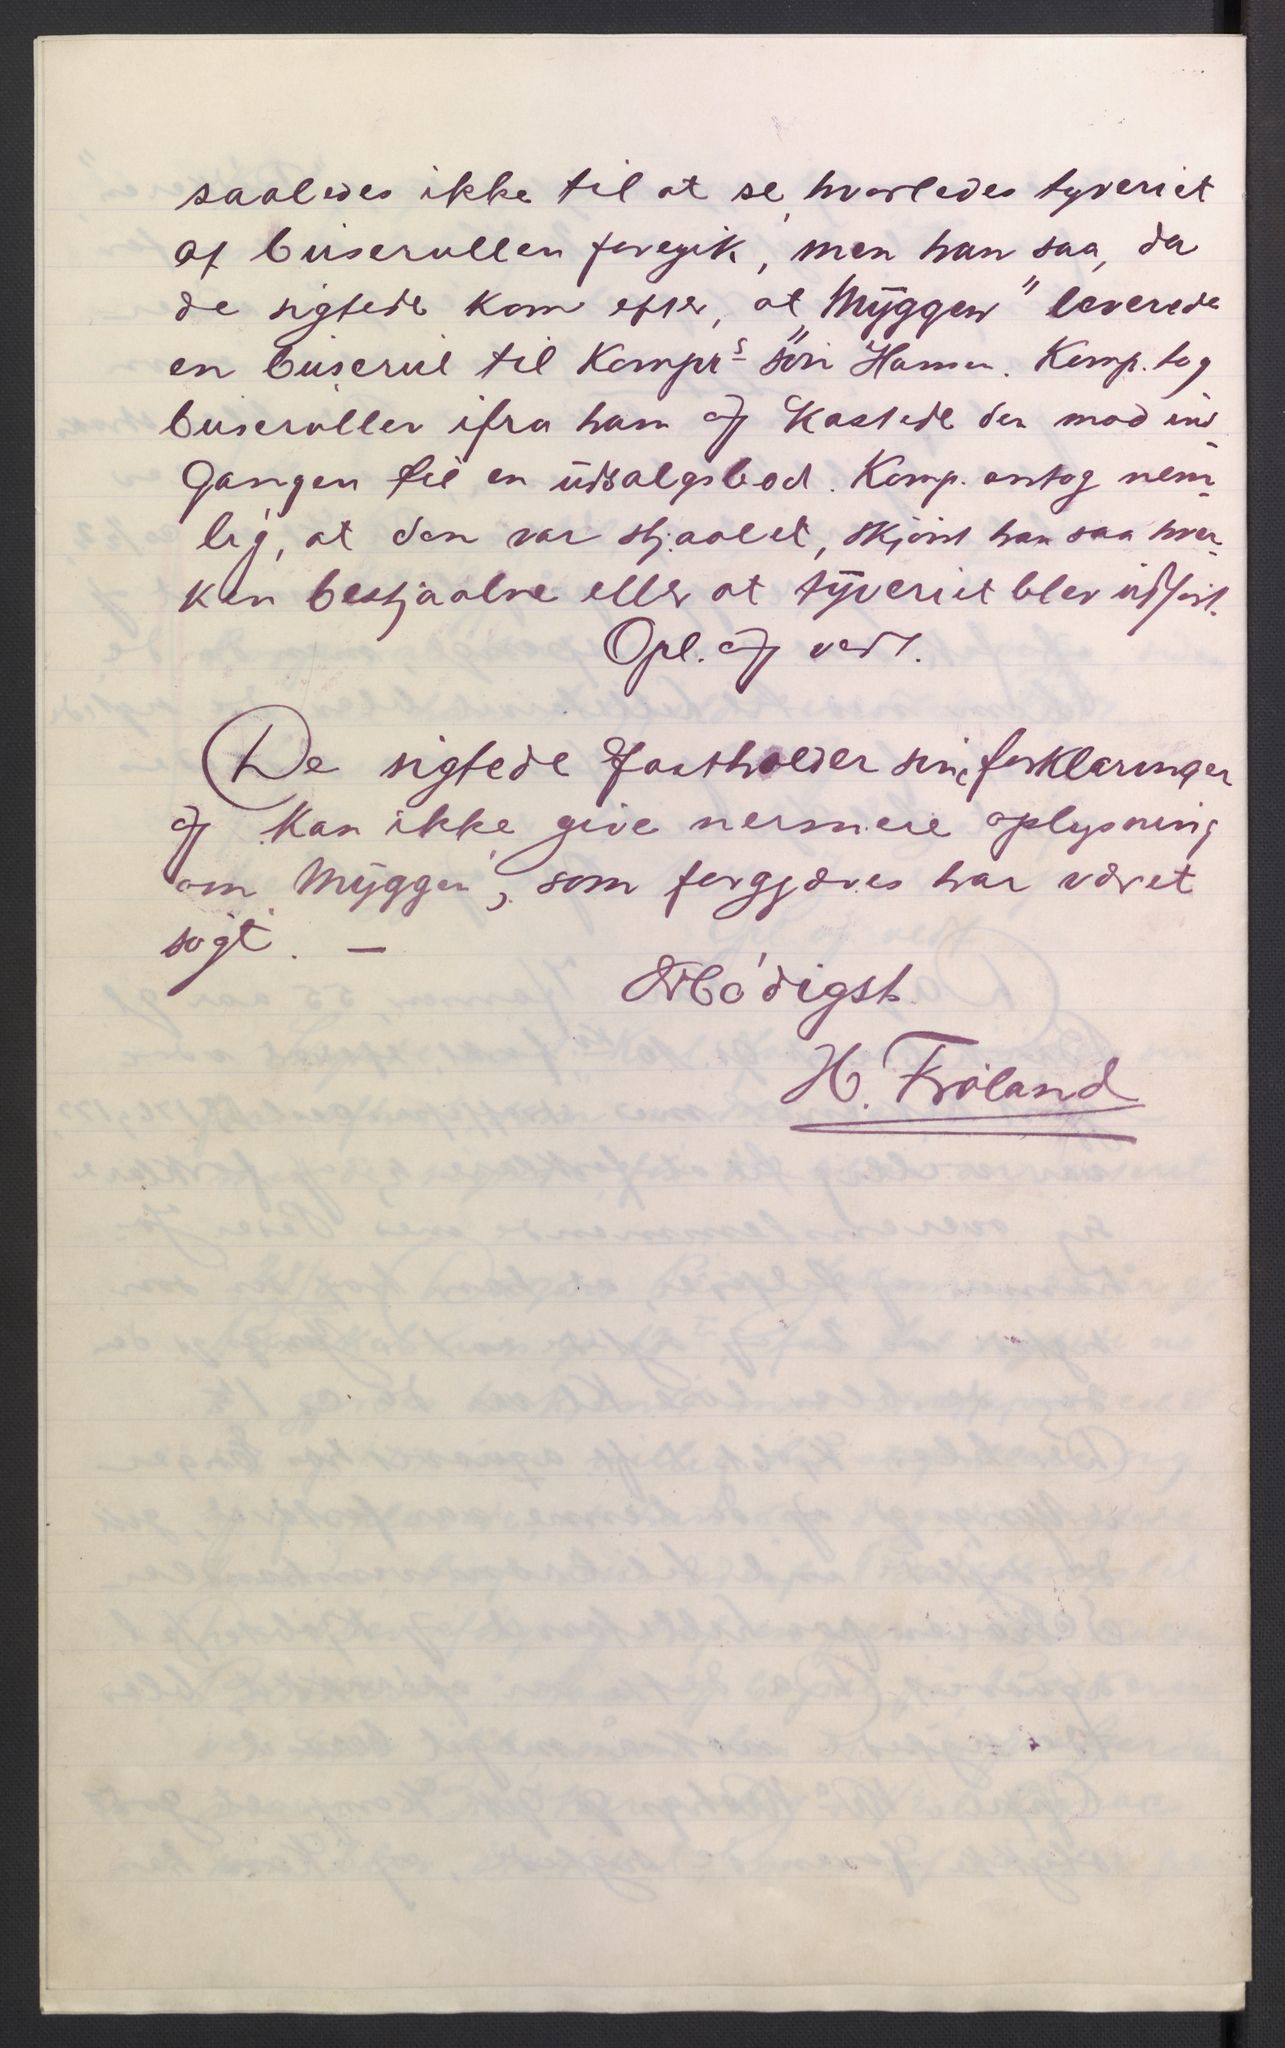 saaledes ikke til at se, hvorledes tyveriet
af buserullen foregik, men han saa, da
de sigtede kom efter, at "Myggen" leverede
en buserul til Kompts søn Hansen. Komp. tog
buserullen ifra ham og kastede den mod ind-
gangen til en udsalgsbod. Komp. antog nem-
lig, at den var stjaalet, skjønt han saa hver-
ken bestjaalne eller at tyveriet blev udført.
Opl. og vedt.
De sigtede fastholder sine forklaringer
og kan ikke give nermere oplysning
om "Myggen", som forgjæves har været
søgt. —
Ærbødigst
H. Frøland